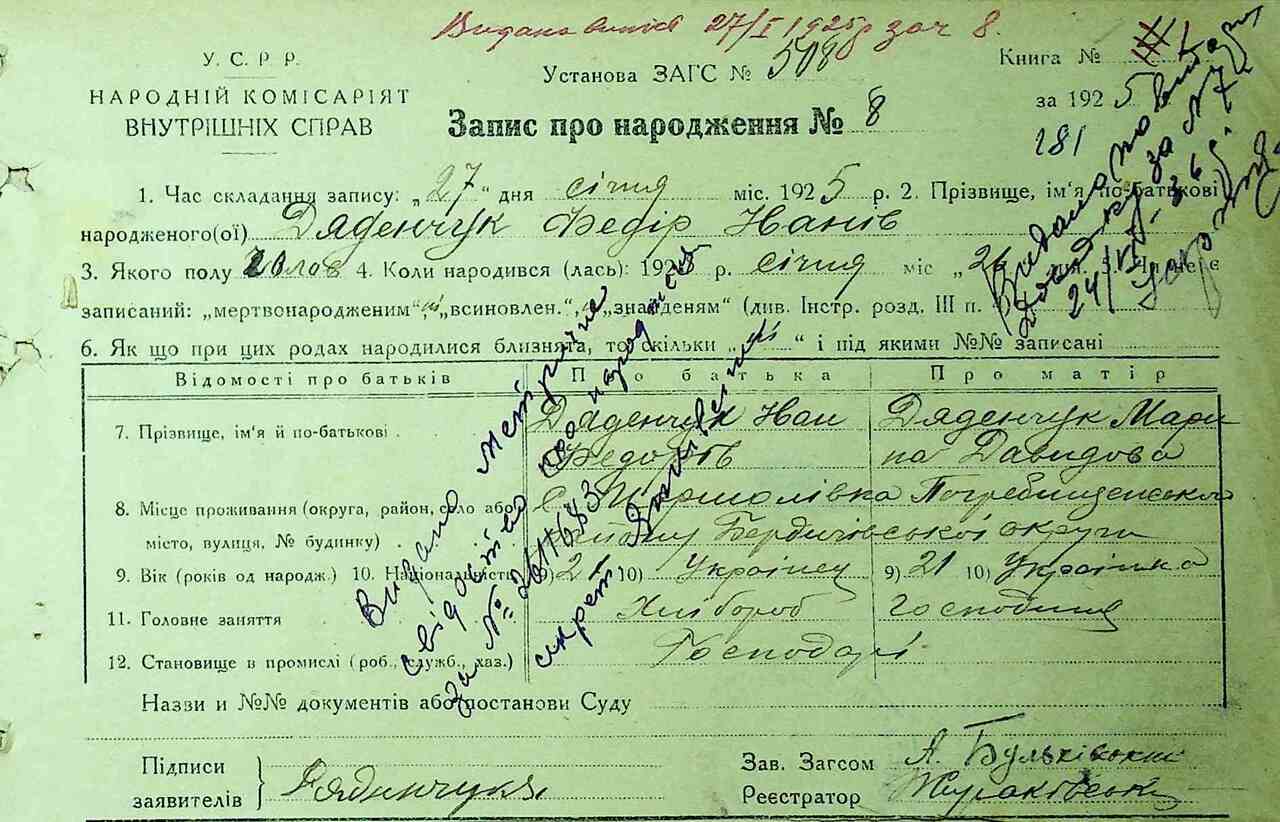 Видана виписка 27/I 1925р за ч 8.
У. С. Р. Р.
НАРОДНІЙ КОМІСАРІЯТ
ВНУТРІШНІХ СПРАВ
Установа ЗАГС № 508
Книга №
за 1925
181
Запис про народження № 8
1. Час складання запису: „27" дня січня міс. 1925 р. 2. Прізвище, ім'я по-батькові
народженого(ої) Дяденчук Федір Іванів
3. Якого полу чолов 4. Коли народився (лась): 1925 р. січня міс „26
записаний: „мертвонародженим" ні „всиновлен." „знайденям" (див. Інстр. розд. III п.
6. Як що при цих родах народилися близнята, то скільки „ні" і під якими №№ записані
Відомості про батьків Про батька Про матір
7. Прізвище, ім'я й по-батькові Дяденчук Іван Дяденчук Мари
Федорів на Давидова
8. Місце проживання (округа, район, село або с. Ширмолівка Погребищенського
місто, вулиця, № будинку) району Бердичівської округи
9. Вік (років од народж.) 10. Національність 9) 21 10) Українец 9) 21 10) Українка
11. Головне заняття Хлібороб Господиня
12. Становище в промислі (роб., служб., хаз.) Господарі
Видано метричне
свідоцтво про народження
за № 2611683
секрет
Видано по
довідку за № 7
24/VI-36
Назви и №№ документів або постанови Суду
Підписи
заявителів Дяденчук
Зав. Загсом А. Бульківський
Реєстратор Жураківський